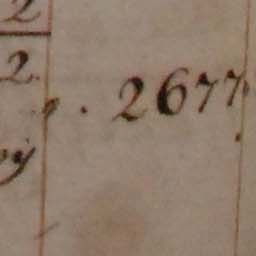 2
2
. 2677